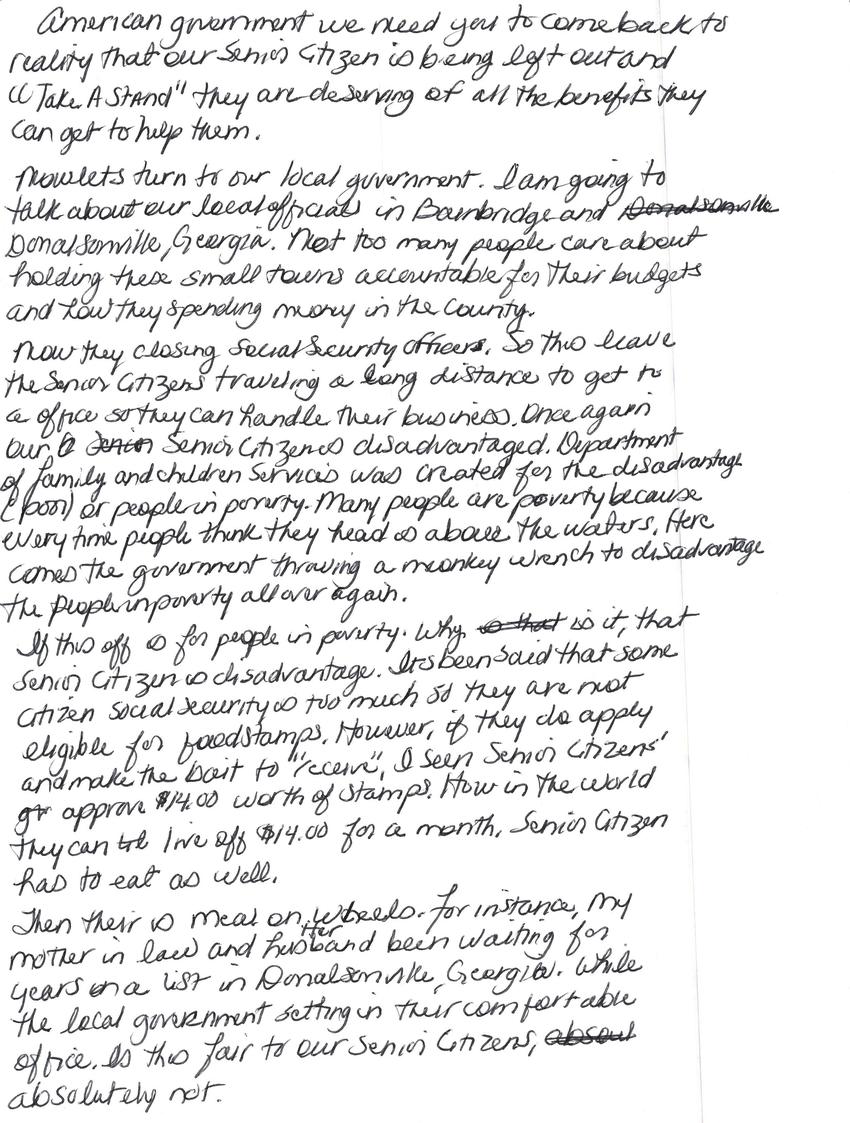 American government we need you to come back to
reality that our Senior Citizen is being left out and
"Take A Stand" they are deserving of all the benefits they
can get to help them.
Now lets turn to our local government. I am going to
talk about our local officials in Bainbridge and Donalsonville
Donalsonville, Georgia. Not too many people care about
holding these small towns accountable for their budgets
and how they spending money in the County.
Now they closing Social Security offices. So this leave
the Senior Citizens traveling a long distance to get to
a office so they can handle their business. Once again
our Senior Senior Citizen is disadvantaged. Department
of family and children Services was created for the disadvantage
(poor) or people in poverty. Many people are poverty because
every time people think they head is above the waters. Here
comes the government throwing a monkey wrench to disadvantage
the people in poverty all over again.
If this off is for people in poverty. Why is that is it, that
Senior Citizen is disadvantage. Its been said that some
citizen social security is too much so they are not
eligible for foodstamps. However, if they do apply
and make the bait to "receive", I seen Senior Citizens'
approve $14.00 worth of stamps. How in the world
they can live off $14.00 for a month. Senior Citizen
has to eat as well.
Then their is meal on wheels. For instance, my
mother in law and her husband been waiting for
years on a list in Donalsonville, Georgia. While
the local government setting in their comfortable
office. Is this fair to our Senior Citizens, absoul
absolutely not.